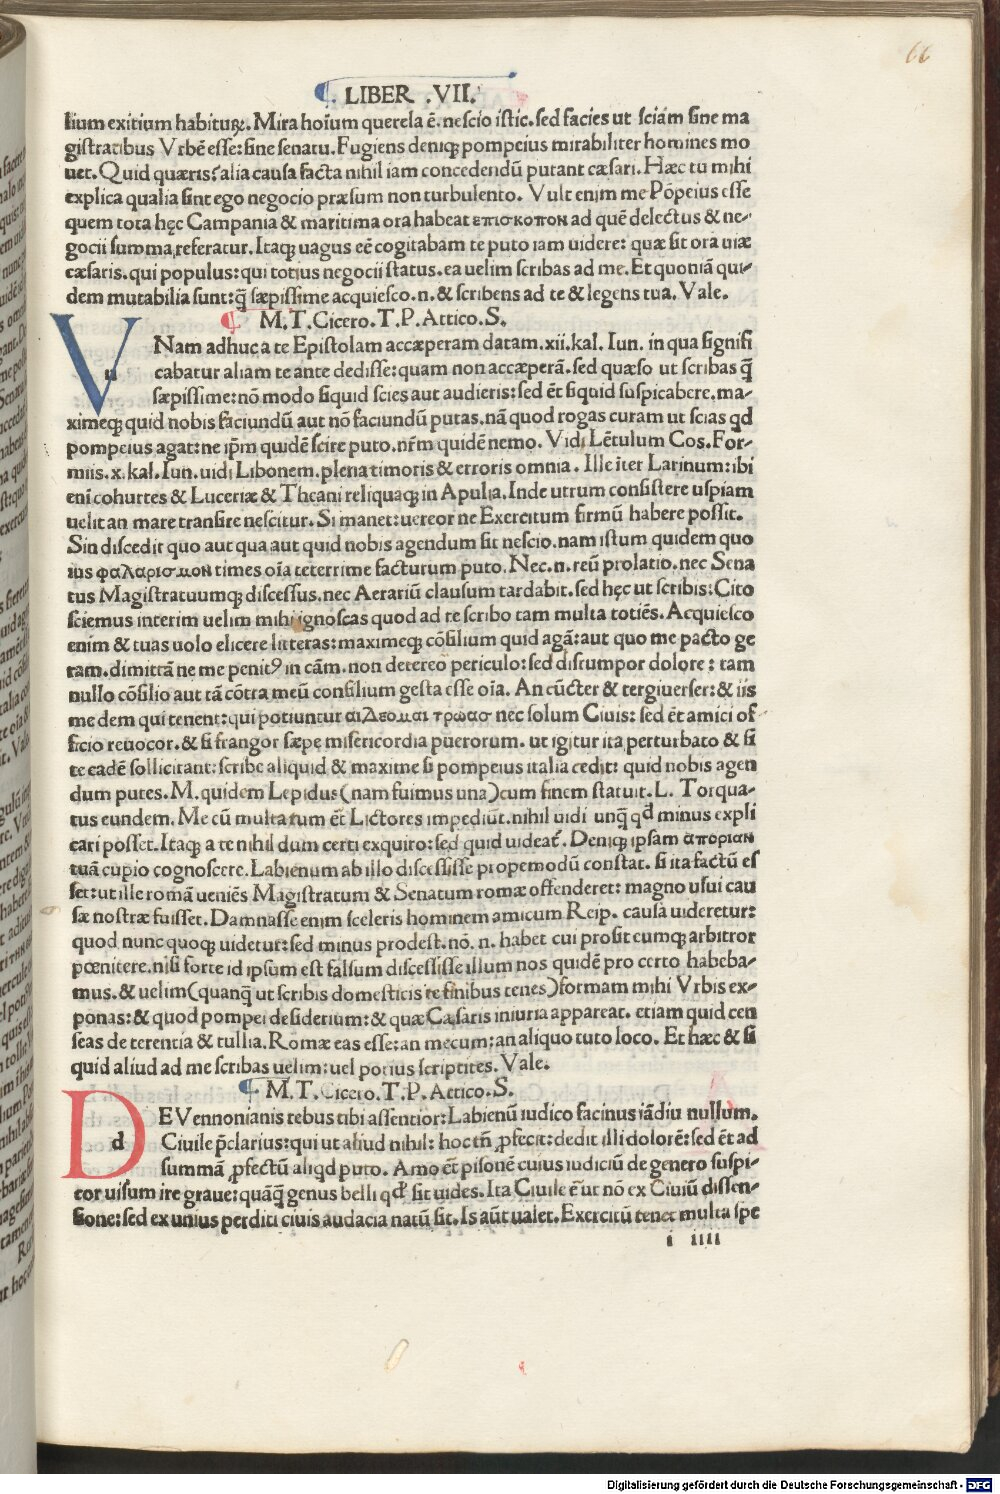 66
LIBER .VII.
lium exitium habituꝝ. Mira hoĩum querela ẽ. nescio istic. sed facies ut sciam sine ma
gistratibus Vrbẽ esse: sine senatu. Fugiens deniqꝫ pompeius mirabiliter homines mo
uet. Quid quæris? alia causa facta nihil iam concedendũ putant cæsari. Hæc tu mihi
explica qualia sint ego negocio præsum non turbulento. Vult enim me Põpeius esse
quem tota hęc Campania & maritima ora habeat επισκοπον ad quẽ delectus & ne-
gocii summa referatur. Itaqꝫ uagus eẽ cogitabam te puto iam uidere: quæ sit ora uiæ
cæsaris. qui populus: qui totius negocii status. ea uelim scribas ad me. Et quoniã qui-
dem mutabilia sunt: q̃ sæpissime acquiesco .n. & scribens ad te & legens tua. Vale.
M. T. Cicero. T. P. Attico. S.
VNam adhuc a te Epistolam accæperam datam. xii. kal. Iun. in qua signifi
cabatur aliam te ante dedisse: quam non accæperã. sed quæso ut scribas q̃
sæpissime: nõ modo siquid scies aut audieris: sed ẽt siquid suspicabere. ma-
ximeqꝫ quid nobis faciundũ aut nõ faciundũ putas. nã quod rogas curam ut scias qd
pompeius agat: ne ip̃m quidẽ scire puto. nr̃m quidẽ nemo. Vidi Lẽtulum Cos. For-
miis. x. kal. Iun. uidi Libonem. plena timoris & erroris omnia. Ille iter Larinum: ibi
eni cohurtes & Luceriæ & Theani reliquaqꝫ in Apulia. Inde utrum consistere uspiam
uelit an mare transire nescitur. Si manet: uereor ne Exercitum firmũ habere possit.
Sin discedit quo aut qua aut quid nobis agendum sit nescio. nam istum quidem quo
ius φαλαρισμον times oĩa teterrime facturum puto. Nec .n. reũ prolatio. nec Sena
tus Magistratuumqꝫ discessus. nec Aerariũ clausum tardabit. sed hęc ut scribis: Cito
sciemus interim uelim mihi ignoscas quod ad te scribo tam multa totiẽs. Acquiesco
enim & tuas uolo elicere litteras: maximeqꝫ cõsilium quid agã: aut quo me pacto ge
ram. dimittã ne me penitꝰ in cãm. non detereo periculo: sed disrumpor dolore: tam
nullo cõsilio aut tã cõtra meũ consilium gesta esse oĩa. An cũcter & tergiuerser: & iis
me dem qui tenent: qui potiuntur αιδεομαι τρωασ nec solum Ciuis: sed ẽt amici of
ficio reuocor. & si frangor sæpe misericordia puerorum. ut igitur ita perturbato & si
te eadẽ sollicitant: scribe aliquid & maxime si pompeius italia cedit: quid nobis agen
dum putes. M. quidem Lepidus (nam fuimus una) cum finem statuit. L. Torqua-
tus eundem. Me cũ multa tum ẽt Lictores impediũt. nihil uidi unq̃ qd minus expli
cari posset. Itaqꝫ a te nihil dum certi exquiro: sed quid uideat̃. Deniqꝫ ipsam αποριαν
tuã cupio cognoscere. Labienum ab illo discessisse propemodũ constat. si ita factũ es
set: ut ille romã ueniẽs Magistratum & Senatum romæ offenderet: magno usui cau
sæ nostræ fuisset. Damnasse enim sceleris hominem amicum Reip. causa uideretur:
quod nunc quoqꝫ uidetur: sed minus prodest. nõ .n. habet cui prosit eumqꝫ arbitror
pœnitere. nisi forte id ipsum est falsum discessisse illum nos quidẽ pro certo habeba-
mus. & uelim (quanq̃ ut scribis domesticis te finibus tenes) formam mihi Vrbis ex-
ponas: & quod pompei desiderium: & quæ Cæsaris iniuria appareat. etiam quid cen
seas de terentia & tullia. Romæ eas esse: an mecum: an aliquo tuto loco. Et hæc & si
quid aliud ad me scribas uelim: uel potius scriptites. Vale.
M. T. Cicero. T. P. Attico. S.
DE Vennonianis rebus tibi assentior: Labienũ iudico facinus iãdiu nullum.
Ciuile p̃clarius: qui ut aliud nihil: hoc tñ ꝓfecit: dedit illi dolorẽ: sed ẽt ad
summã ꝓfectũ aliqd puto. Amo ẽt pisonẽ cuius iudiciũ de genero suspi-
cor uisum ire graue: quãq̃ genus belli qd sit uides. Ita Ciuile ẽ ut nõ ex Ciuiũ dissen-
sione: sed ex unius perditi ciuis audacia natũ sit. Is aũt ualet. Exercitũ tenet multa spe
i iiii
Digitalisierung gefördert durch die Deutsche Forschungsgemeinschaft - DFG